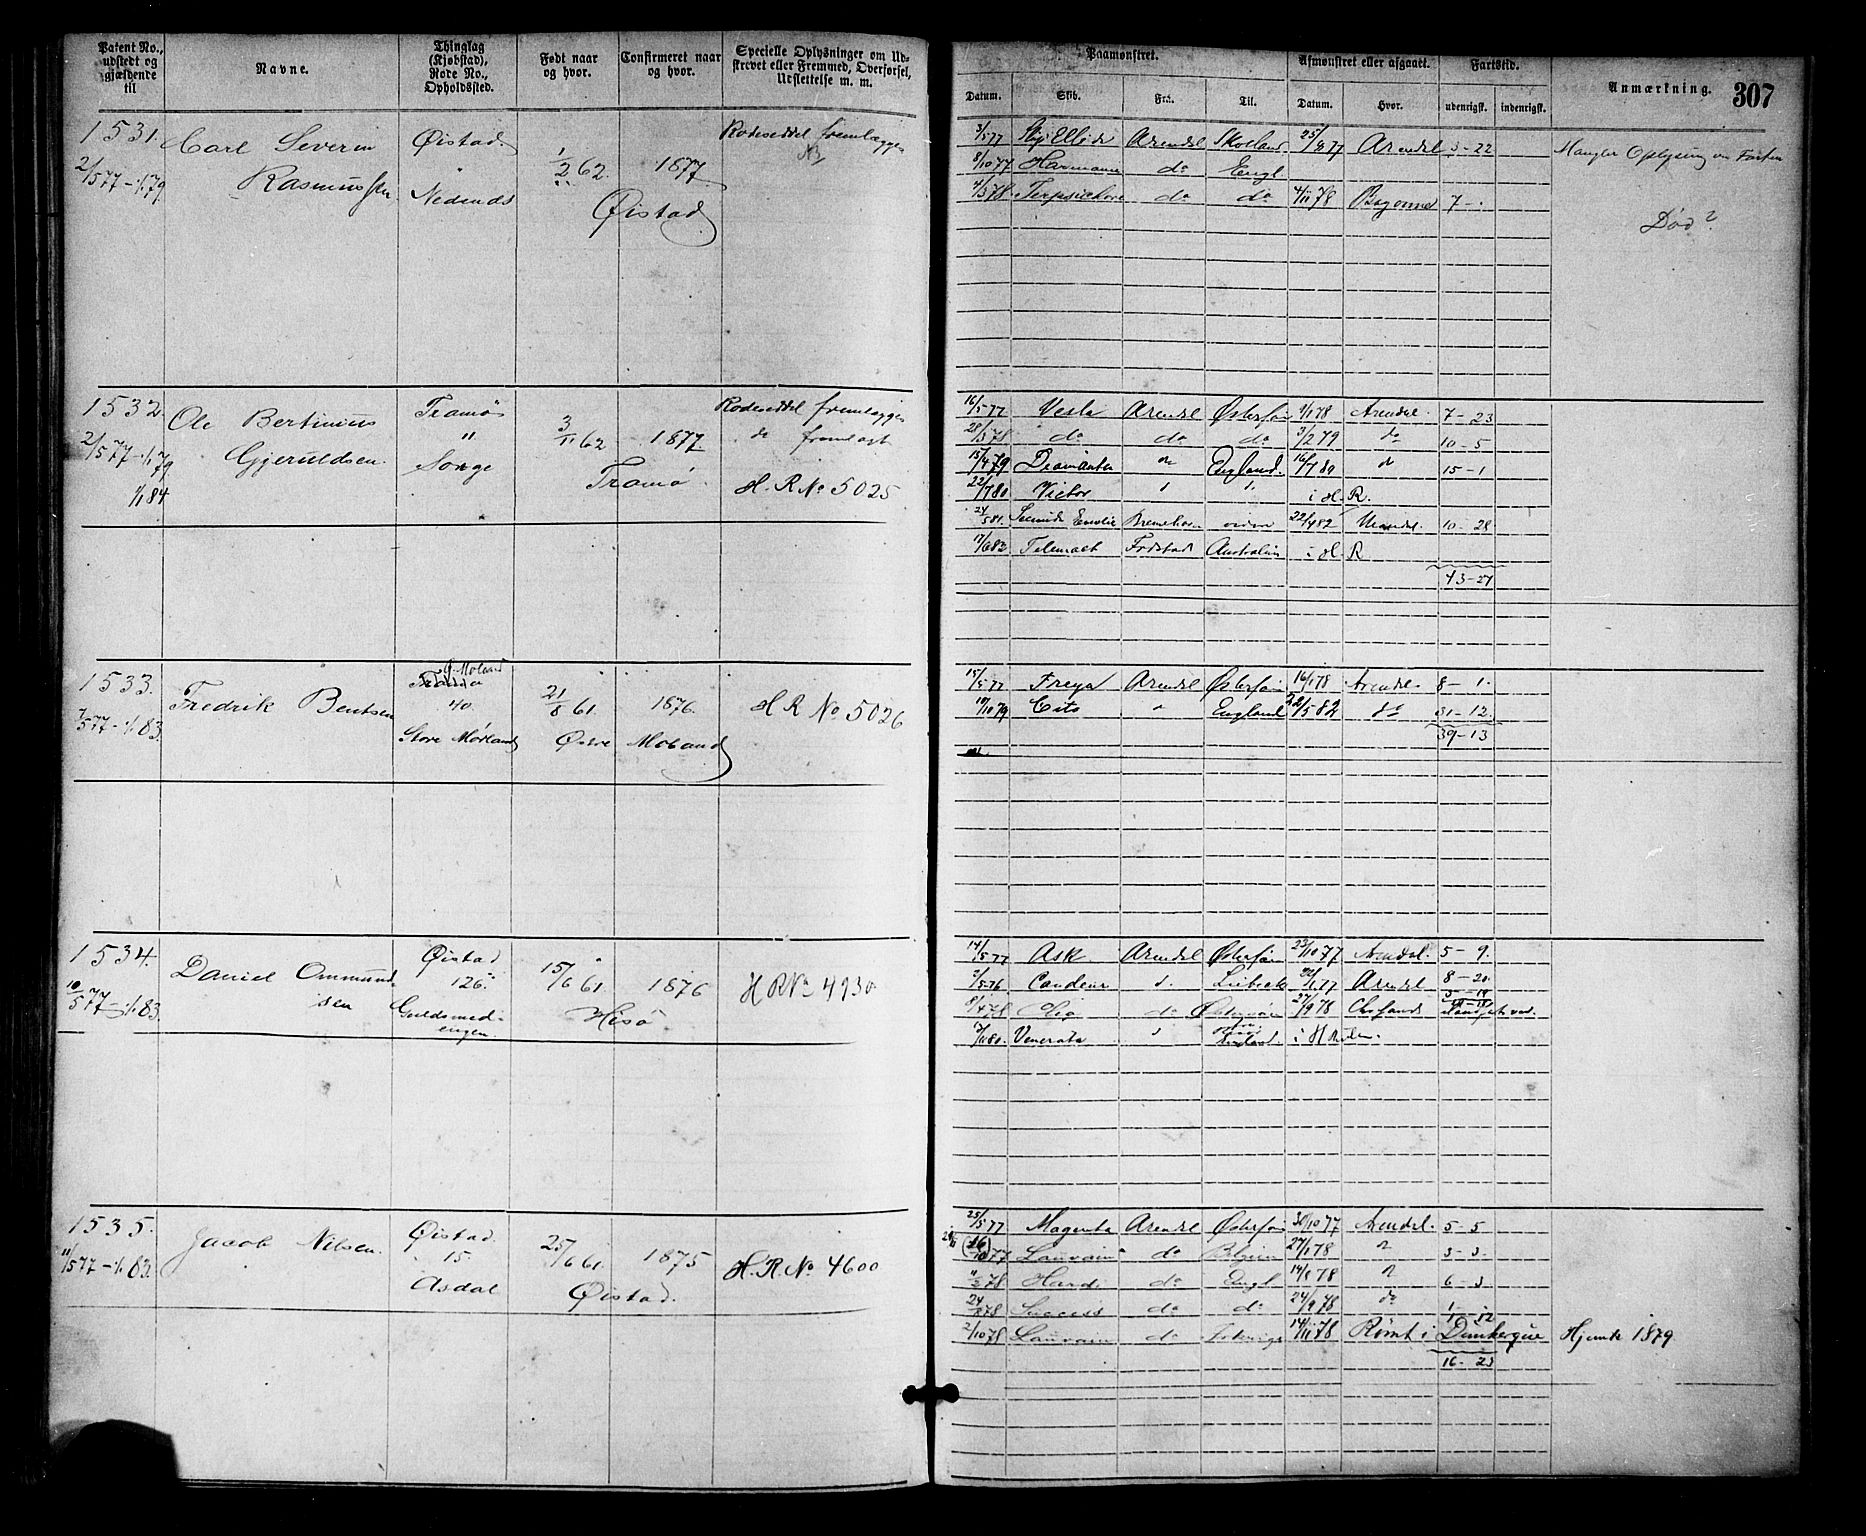 Patent No., udstedt og gjældende til
Navne.
Thinglag (Kjøbstad), Rode No., Opholdssted.
Født naar og hvor.
Confirmeret naar og hvor.
Specielle Oplysninger om Udskrevet eller Fremmed, Overførsel, Udslettelse m. m.
Paamønstret.
Afmønstret eller afgaaet.
Fartstid.
Anmærkning.
307
Datum. Skib. Fra. Til. Datum. Hvor. udenrigsk. indenrigsk.
1531. Carl Severin Rasmussen
2/5 77 - 1/1 79
Øistad
Nedenæs
1/2 62. 1877.
Øistad
Rodeseddel fremlægges
3/5 77 Arendel Skotland 25/8 77 Arendel 3-22 Mangler Oplysning om Farten
8/10 77 do Engl
4/3 78 Terpsichore do do 4/11 78 7 -
Død?
1532. Ole Bertinius Gjeruldsen.
2/5 77 - 1/1 79
1/1 84
Tromø
"
Songe
3/11 62 1877.
Tromø.
Rodeseddel fremlægges
do fremlagt
H. R No 5025
16/5 77 Vesta Arendel Østersøn 9/1 78 Arendal. 7-23
28/3 78 do do do 3/2 79 do 10-5
15/4 79 Diamanten do England. 16/7 80 15-1
22/7 80 Victor i H. R.
24/5 81. Bremerhavn 22/4 82 10-28
17/6 82 Telemach Fredstad Australien i H. R
43-27
1533. Fredrik Bentsen
7/5 77 - 1/1 83.
Ø. Moland
40.
Store Mørland
21/8 61. 1876.
Østre Moland
H R No 5026
15/5 77 Freya Arendel Østersøn 16/1 78 Arendel. 8-1.
10/10 79 Cito " England 22/5 82 do 31-12.
39-13
1534. Daniel Ommundsen
10/5 77 - 1/1 83.
Øistad
126.
Guldsmedengen.
15/6 61. 1876
Hisø
H R No 4930
14/5 77 Ask Arendel Østersøn 23/10 77 Arendal. 5-9.
Liebeck Arendel 8-20.
8/4 78 do Østersøen 27/9 78 Chrsand
17/11 80. Venerata i H Rulen.
1535. Jacob Nilsen.
11/5 77 - 1/1 83.
Øistad
15
Asdal
25/6 61. 1875
Øistad.
H. R. No 4600
25/5 77 Magenta Arendel Østersøn 30/10 77 Arendel. 5-5
Louvain do Belgien 27/1 78 3-3.
Hardi do Engl 14/8 78 6-3
24/8 78 Success do do 24/9 78 do 1-
2/10 78 Louvain do 14/11 78 Rømt i Dünkerque Hjemde 1879
16-23